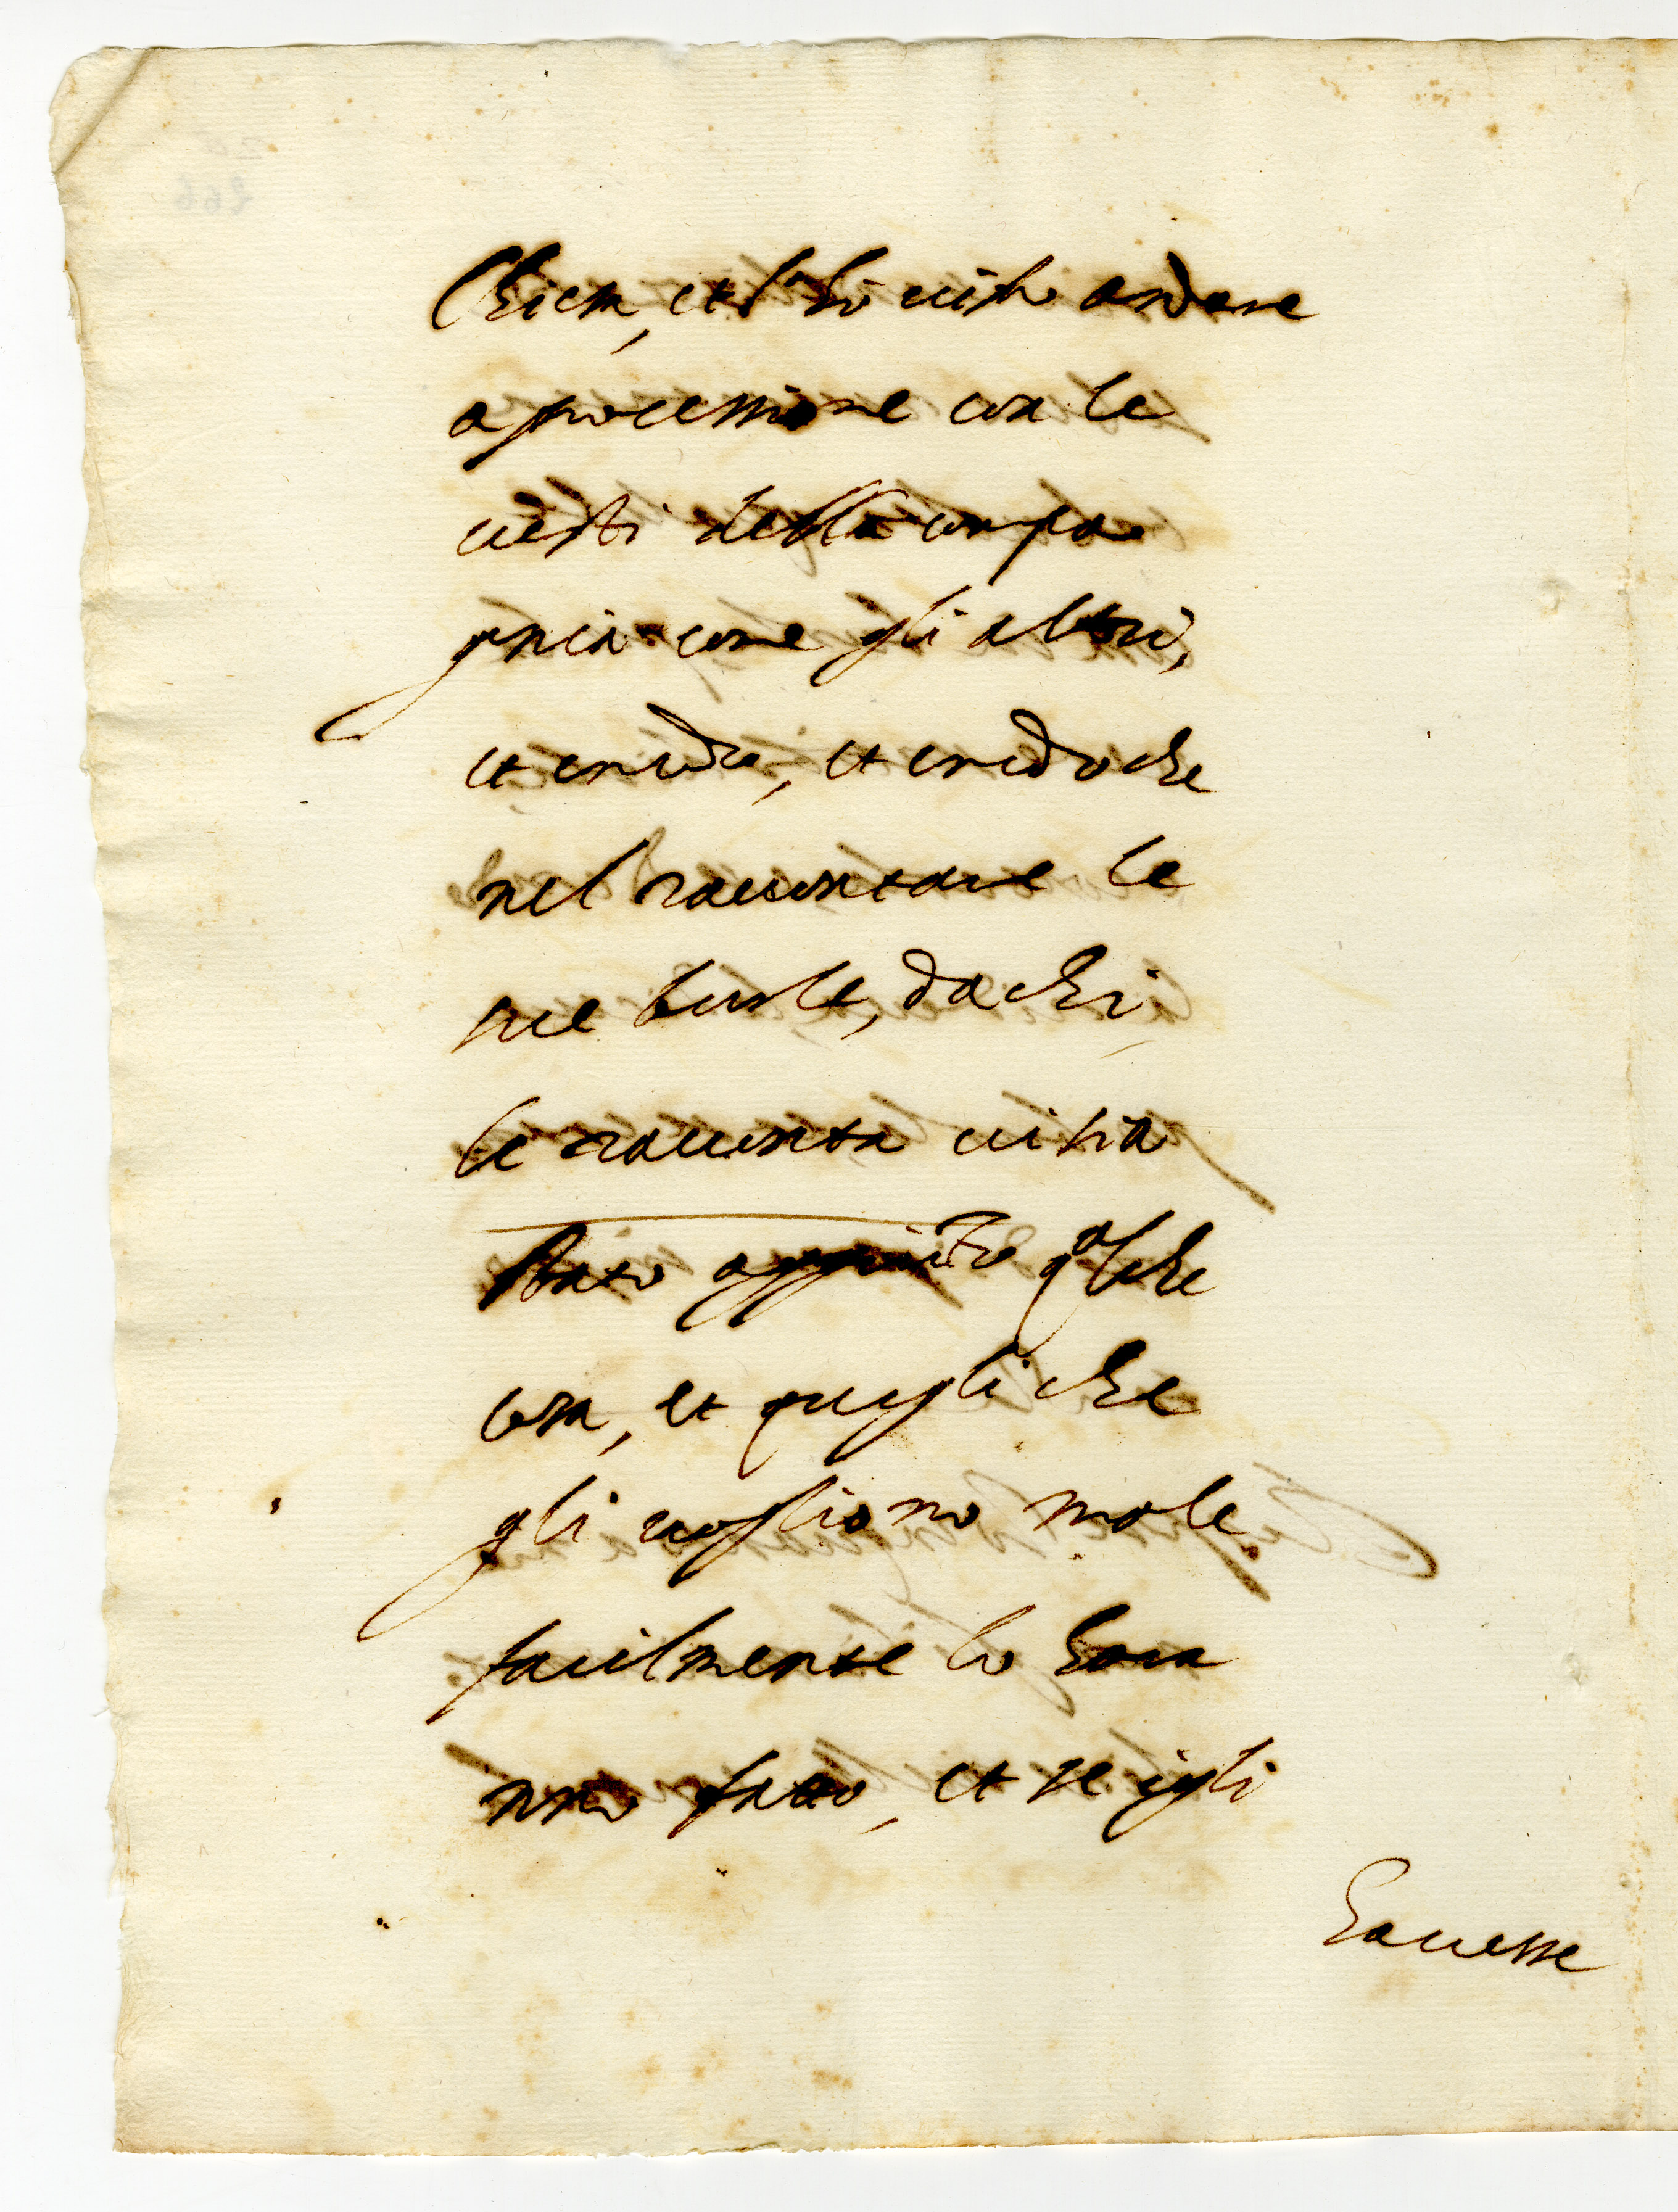 Chiesa, et l'hò visto andare
a processione con le
vesti della compa
gnia come gli altri,
et credo che
nel raccontare le
sue burle, da chi
le racconta vi sia
stato aggiunto qalche
cosa, et quegli che
gli vogliono male
facilmente lo hara
nno fatto, et se egli
hauesse